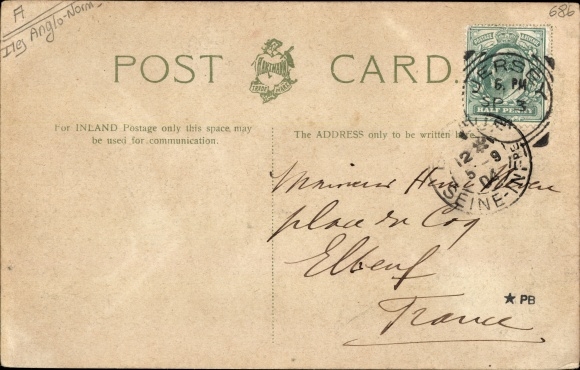 A
Iles Anglo-Norm
686
POST CARD.
HARTMANN
TRADE MARK
For INLAND Postage only this space may
be used for communication.
The ADDRESS only to be written
HALF PENNY
JERSEY
6 PM
SP 3
12
5 9
04
SEINE-INFRE
Monsieur
place du Coq
Elbeuf
France
★ PB